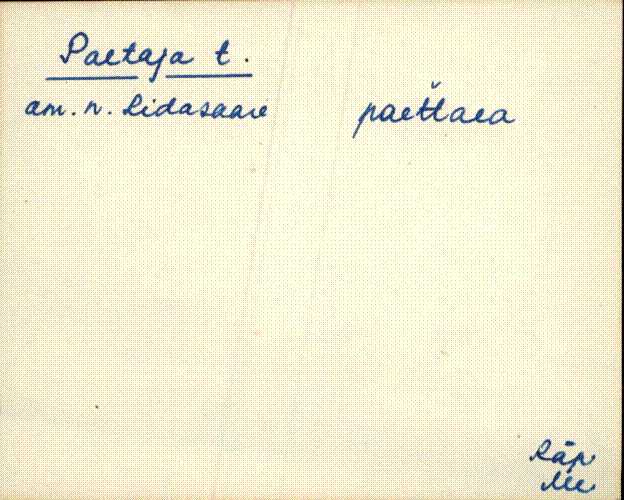 Paetaja t.
am. n. Lidasaare paettaea
Räp
Me